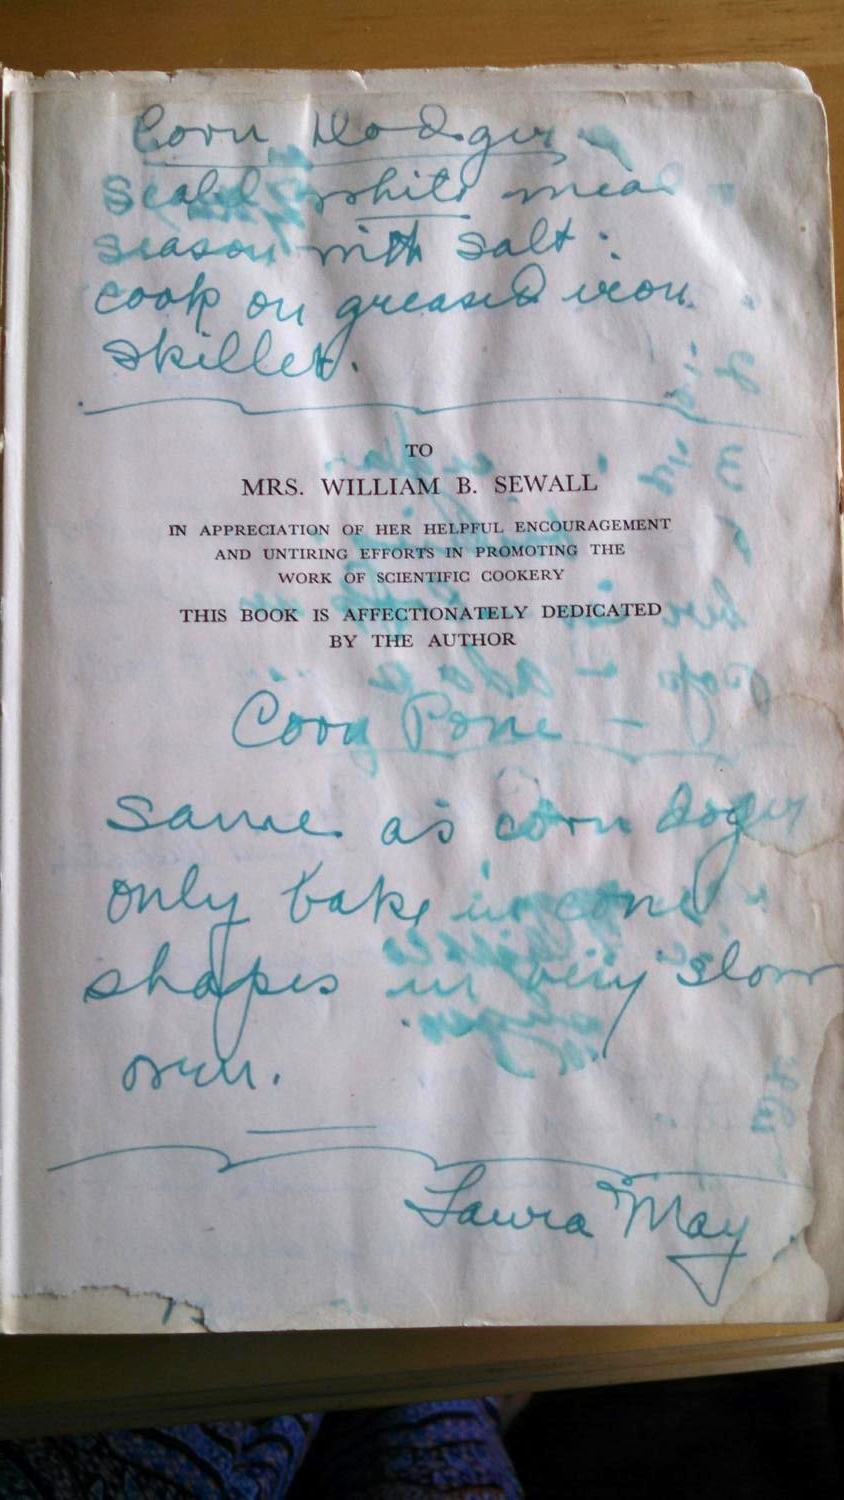 Corn Dodgers
Scald white meal
season with salt.
cook on greased iron
skillet.
TO
MRS. WILLIAM B. SEWALL
IN APPRECIATION OF HER HELPFUL ENCOURAGEMENT
AND UNTIRING EFFORTS IN PROMOTING THE
WORK OF SCIENTIFIC COOKERY
THIS BOOK IS AFFECTIONATELY DEDICATED
BY THE AUTHOR
Corn Pone —
Same as corn dogers
only bake in cone
shapes in very slow
oven.
Laura May